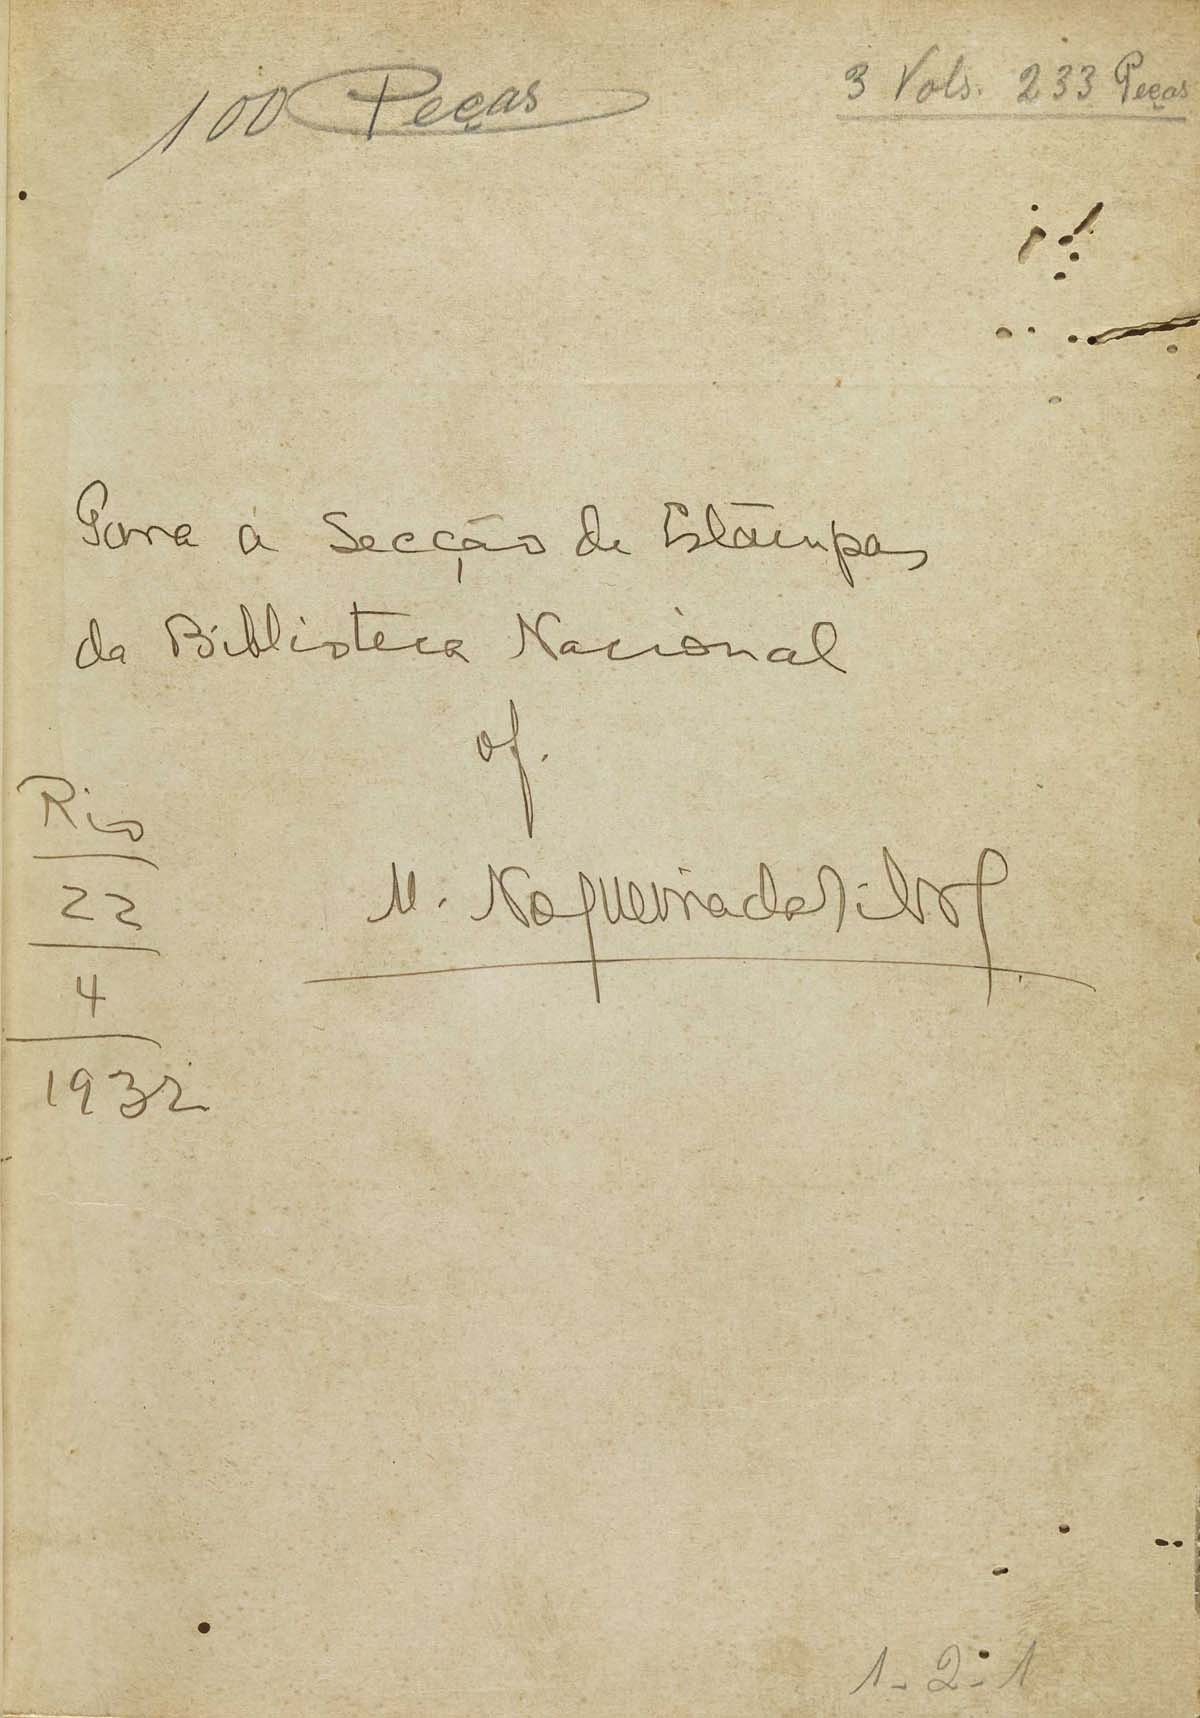 100 Peças
3 Vols. 233 Peças
Para a Secção de Estampas
da Biblioteca Nacional
of.
M. Nogueira da Silva
Rio
22
4
1932
1-2-1